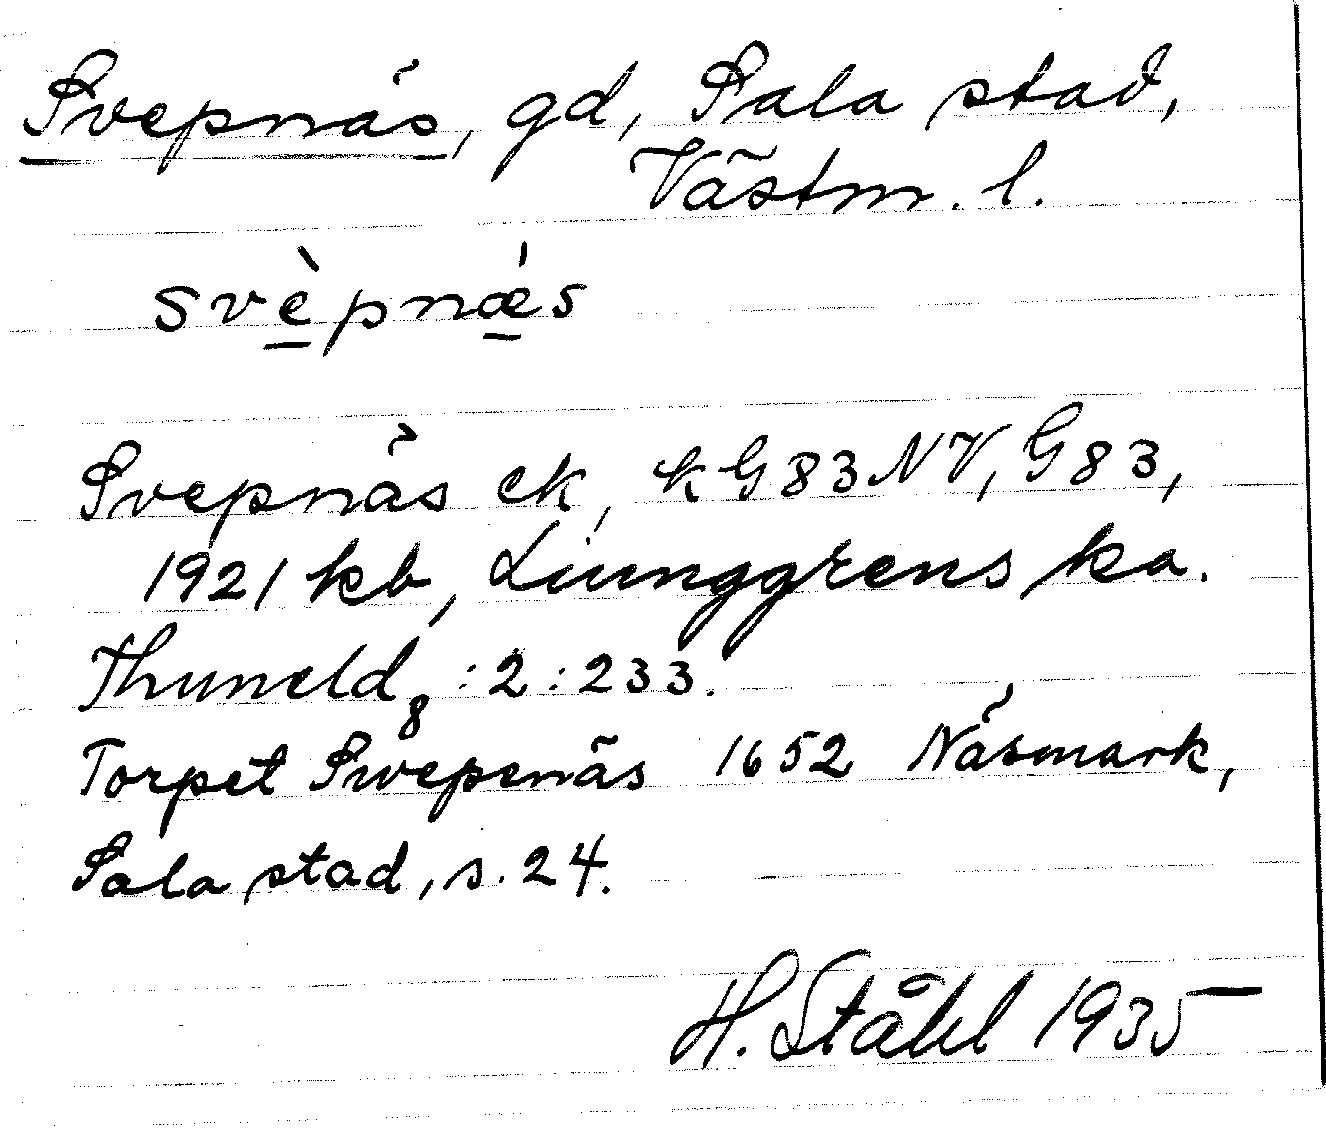 Svepnäs, gd, Sala stad,
Västm. l.
svè̱pnǽ̱s
Svepnäs ek, kG83NV, G83,
1921 kb, Liunggrens ka.
Thuneld₈ :2:233.
Torpet Swepenäs 1652 Näsmark,
Sala stad, s. 24.
H. Ståhl 1935